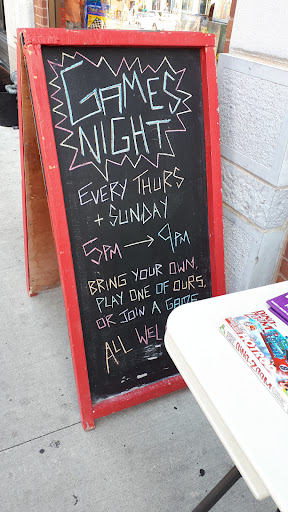 GAMES
NIGHT
EVERY THURS
+ SUNDAY
5PM → 9PM
BRING YOUR OWN,
PLAY ONE OF OURS,
OR JOIN A GAME
ALL